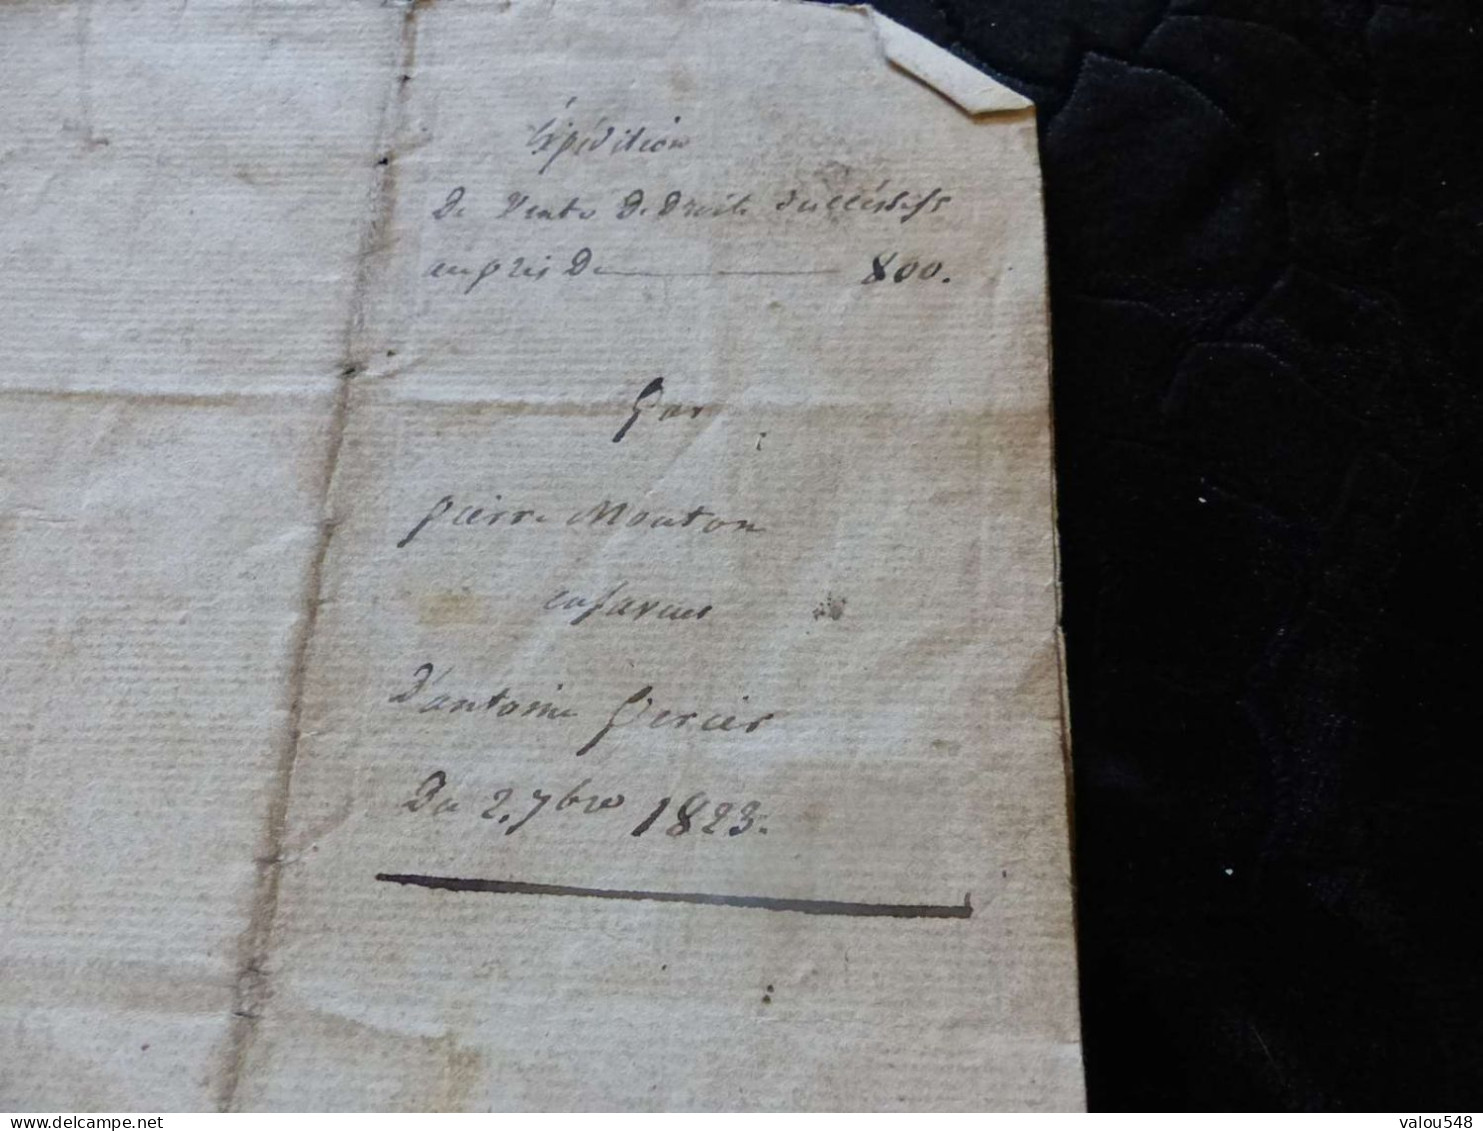 Expédition
De Vente De Droits Successifs
au prix De 800.
Par
pierre Mouton
en faveur
D'antoine percier
Du 2. 7bre 1823.
valou548